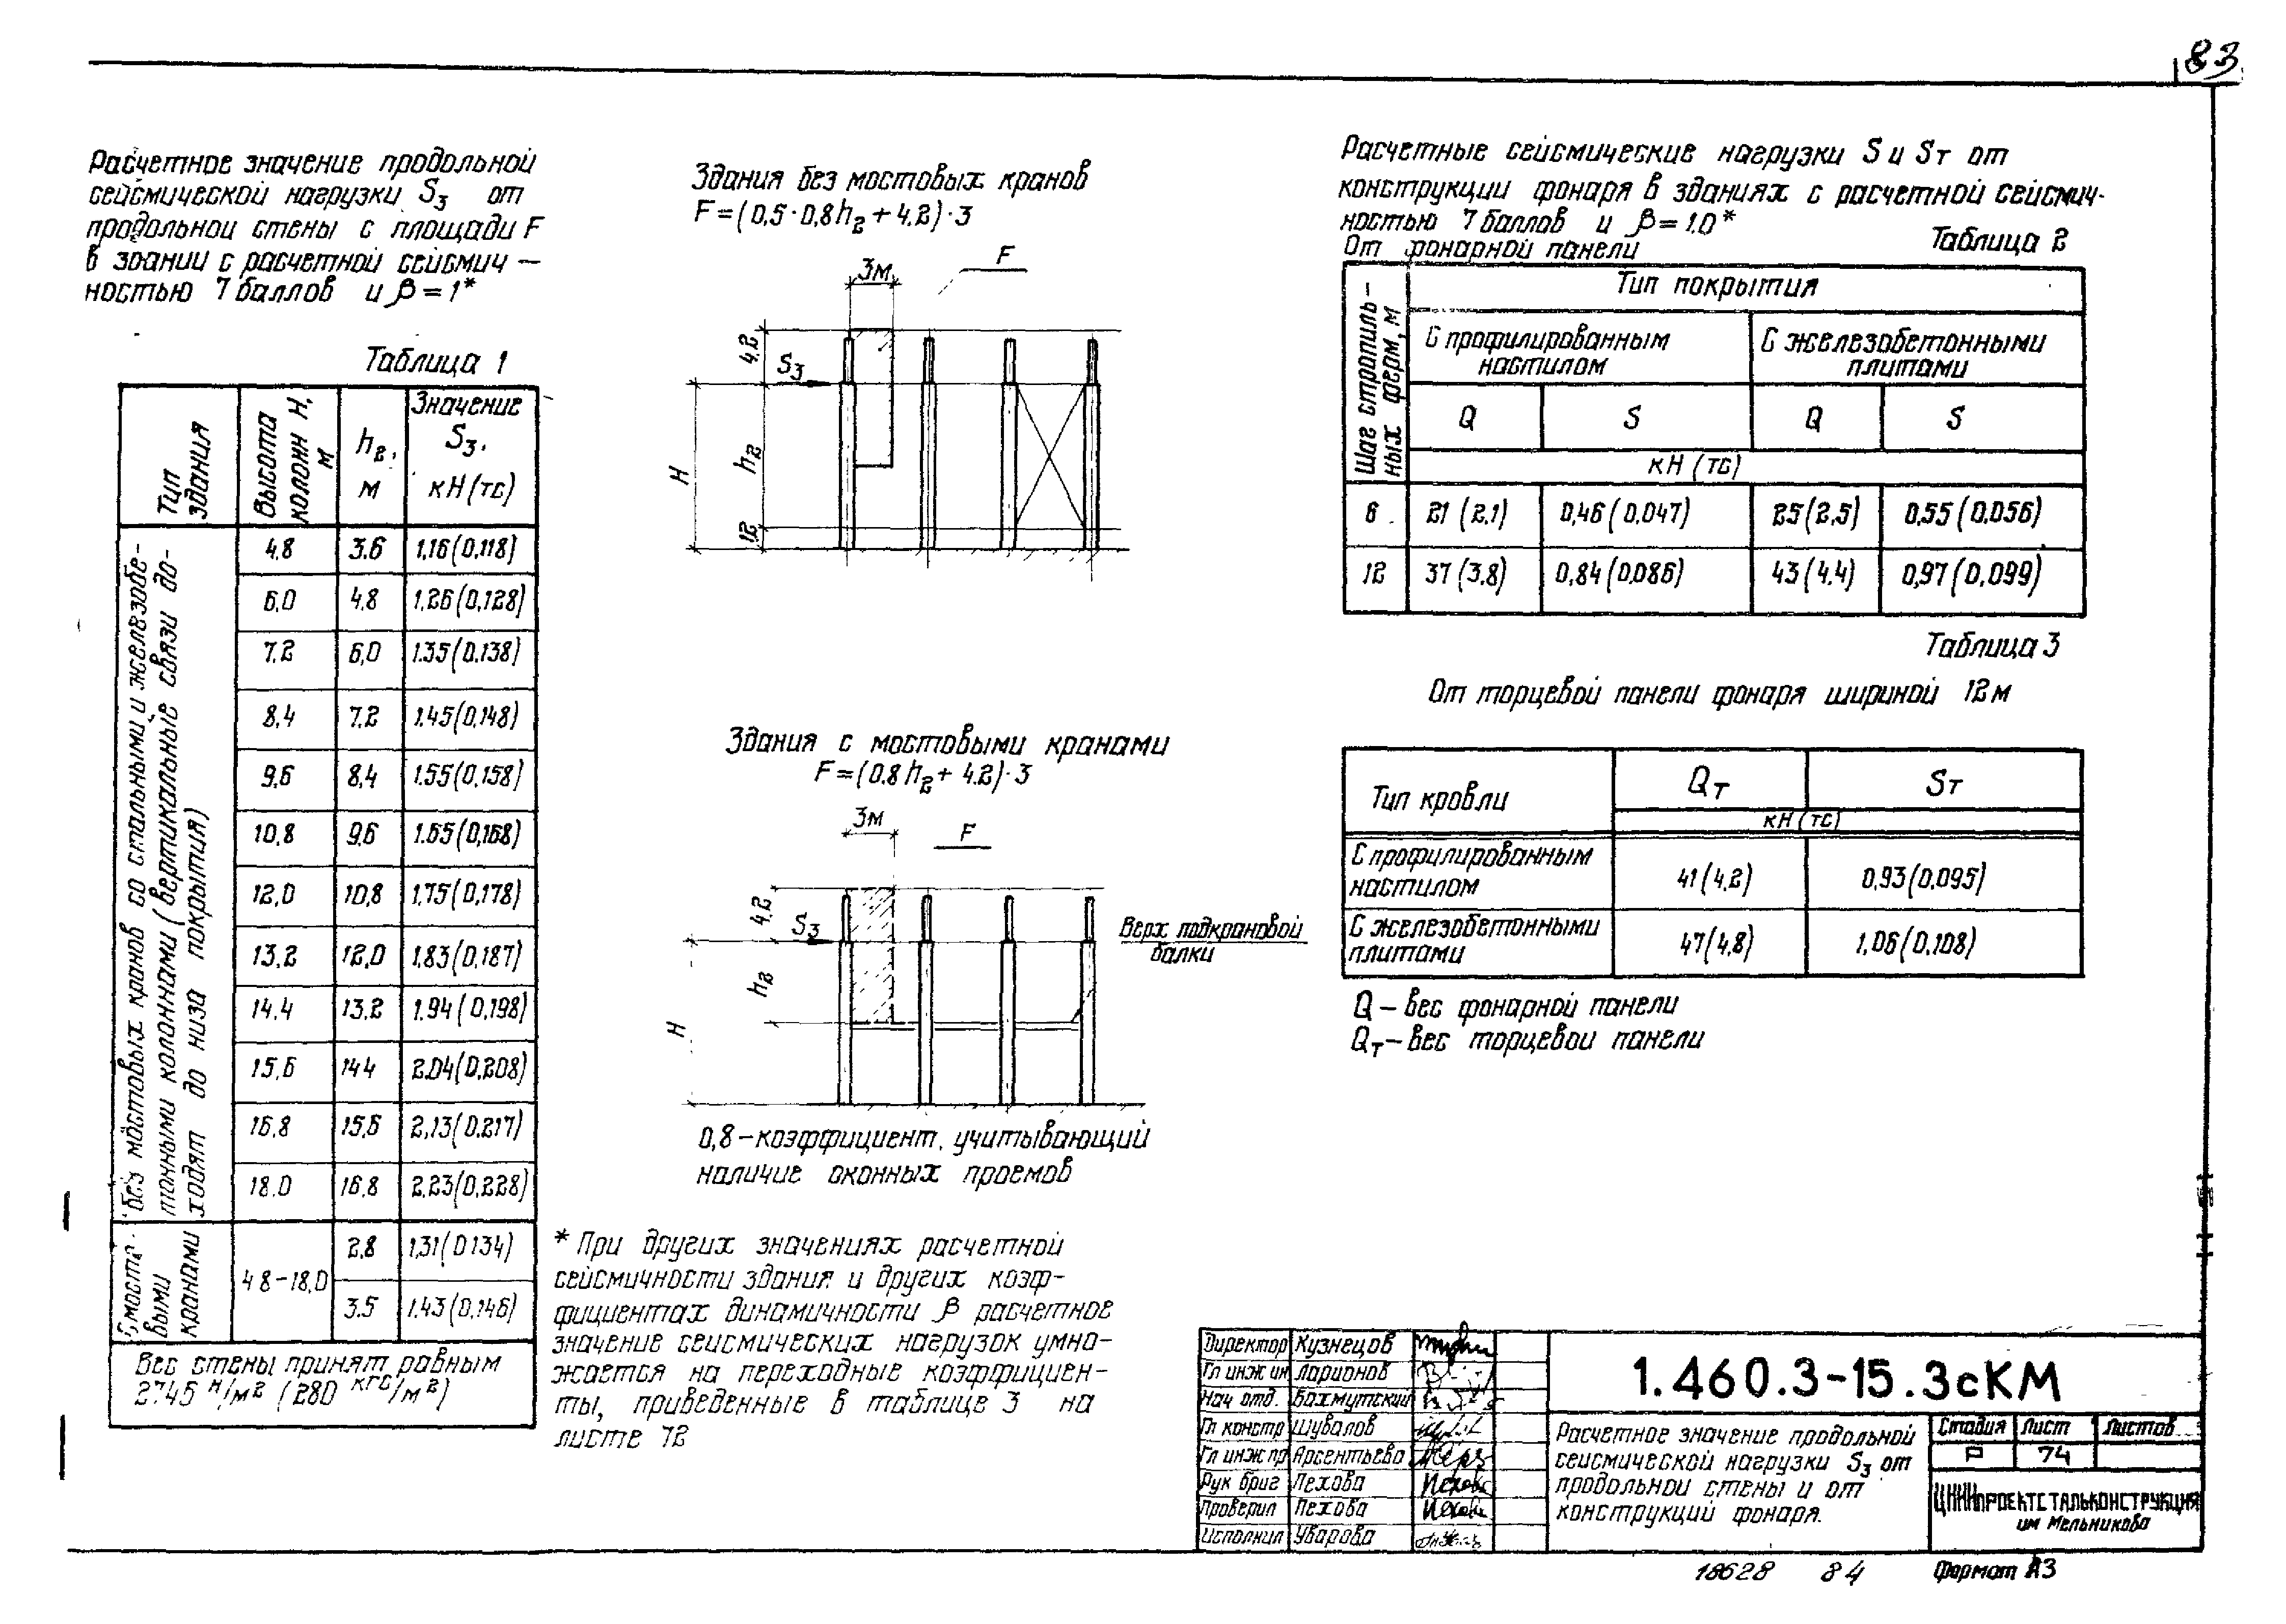 83
Расчетное значение продольной
сейсмической нагрузки S₃ от
продольной стены с площади F
в здании с расчетной сейсмич-
ностью 7 баллов и β = 1*
Таблица 1
Тип здания | Высота колонн H, м | hв, м | Значение S₃, кН (тс)
Без мостовых кранов со стальными и железобе-
тонными колоннами (вертикальные связи до-
ходят до низа покрытия)
4,8 3,6 1,16 (0,118)
6,0 4,8 1,26 (0,128)
7,2 6,0 1.35 (0.138)
8,4 7,2 1.45 (0,148)
9,6 8,4 1.55 (0,158)
10,8 9,6 1.65 (0,168)
12,0 10,8 1,75 (0,178)
13,2 12,0 1,83 (0,187)
14,4 13,2 1.94 (0,198)
15,6 14.4 2.04 (0,208)
16,8 15,6 2,13 (0.217)
18.0 16,8 2,23 (0,228)
С мосто-
выми
кранами
4 8-18,0
2,8 1,31 (0 134)
3.5 1.43 (0,146)
Вес стены принят равным
2745 н/м² (280 кгс/м²)
Здания без мостовых кранов
F = (0,5·0,8hв + 4.2)·3
3м F
4,2 S₃
H hв
1,2
Здания с мостовыми кранами
F = (0.8 hв + 4.2)·3
3м F
4,2 S₃
Верх подкрановой
балки
H hв
0,8 - коэффициент, учитывающий
наличие оконных проемов
* При других значениях расчетной
сейсмичности здания и других коэф-
фициентах динамичности β расчетное
значение сейсмических нагрузок умно-
жается на переходные коэффициен-
ты, приведенные в таблице 3 на
листе 72
Расчетные сейсмические нагрузки S и Sт от
конструкции фонаря в зданиях с расчетной сейсмич-
ностью 7 баллов и β = 1.0*
От фонарной панели
Таблица 2
Шаг стропиль-
ных ферм, м
Тип покрытия
С профилированным
настилом
С железобетонными
плитами
Q S Q S
кН (тс)
6 21 (2,1) 0,46 (0,047) 25 (2,5) 0,55 (0,056)
12 37 (3.8) 0,84 (0,086) 43 (4.4) 0,97 (0,099)
Таблица 3
От торцевой панели фонаря шириной 12 м
Тип кровли Qт Sт
кН (тс)
С профилированным
настилом
41 (4,2) 0,93 (0,095)
С железобетонными
плитами
47 (4,8) 1,06 (0,108)
Q - вес фонарной панели
Qт - вес торцевой панели
Директор Кузнецов
Гл инж ин Ларионов
Нач отд. Бахмутский
Гл констр Шувалов
Гл инж пр Арсентьева
Рук бриг Пехова
Проверил Пехова
Исполнил Уварова
1.460.3-15.3сКМ
Расчетное значение продольной
сейсмической нагрузки S₃ от
продольной стены и от
конструкций фонаря.
Стадия Лист Листов
Р 74
ЦНИИПРОЕКТСТАЛЬКОНСТРУКЦИЯ
им Мельникова
18628 84
Формат А3